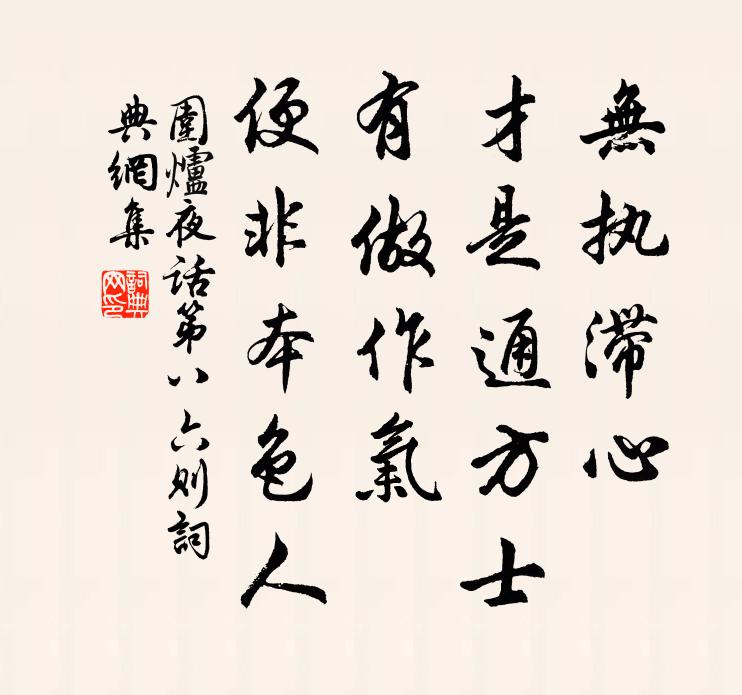 無执滞心
才是通方士
有做作氣
便非本色人
圍爐夜话第八六则詞
典網集
詞典
网印